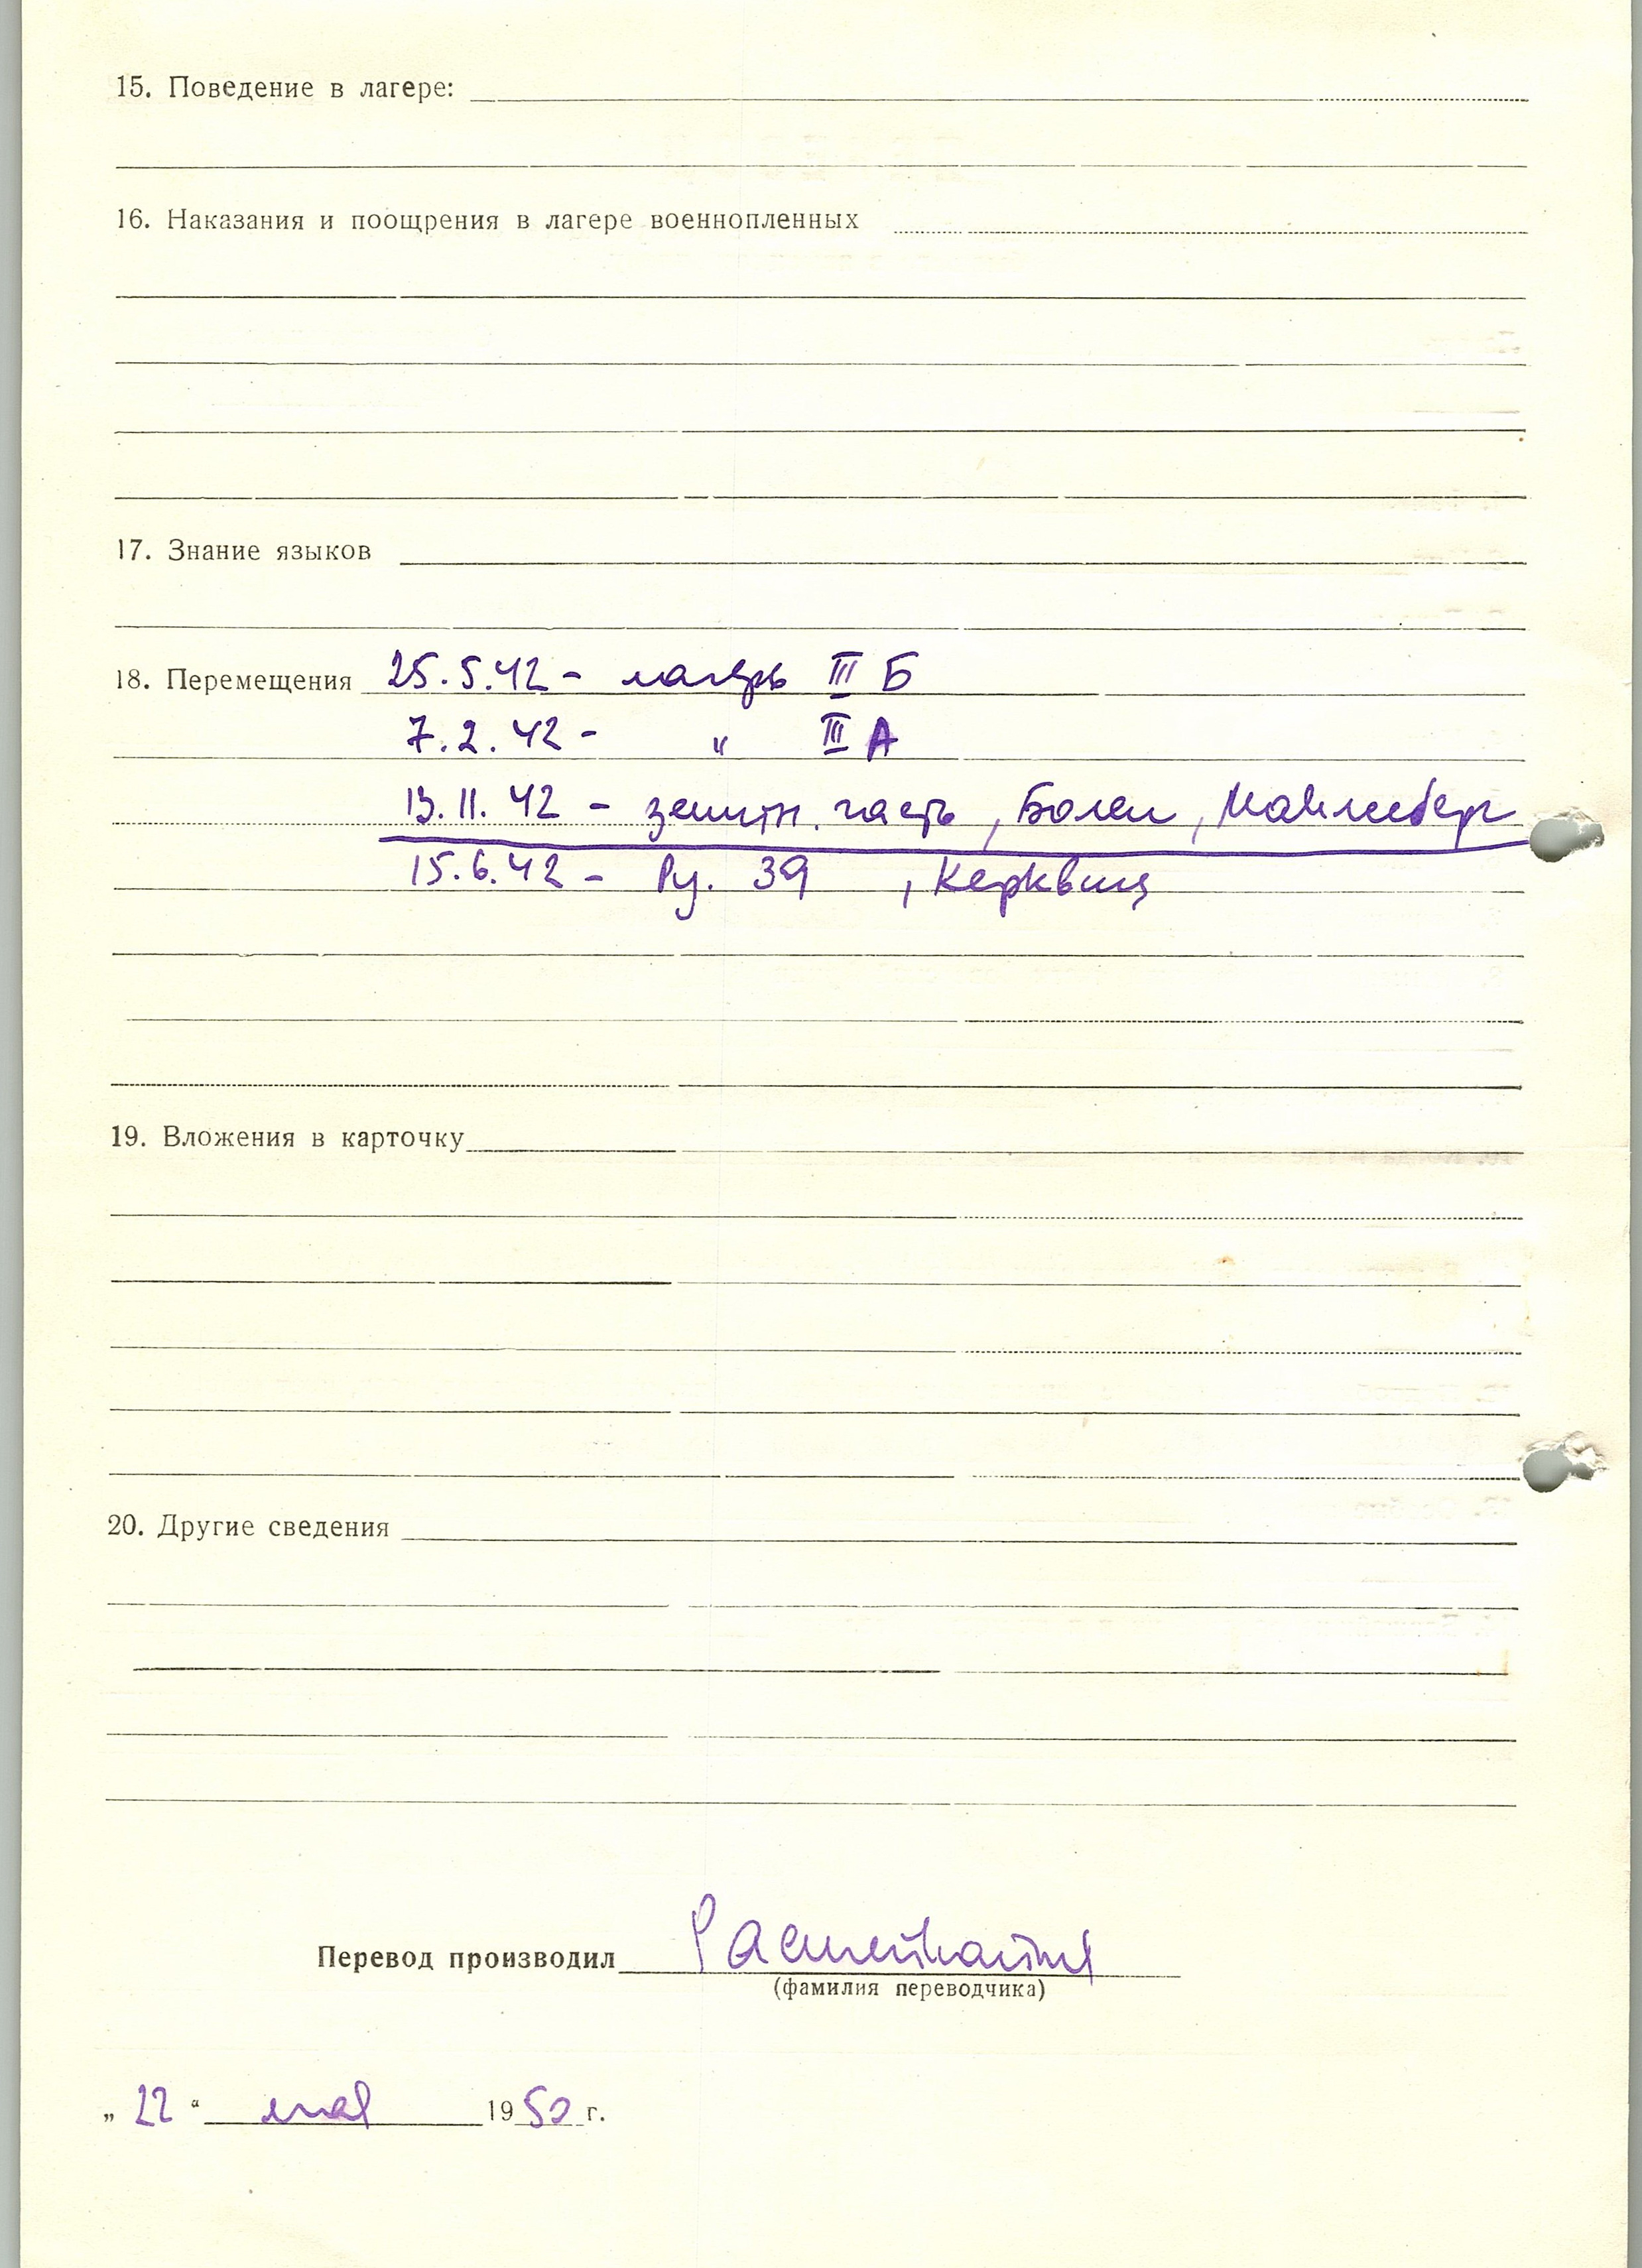 15. Поведение в лагере:
16. Наказания и поощрения в лагере военнопленных
17. Знание языков
18. Перемещения 25.5.42 - лагерь III Б
7.2.42 - " III А
13.11.42 - зенитн. часть, Болен,
15.6.42 - Ру. 39, Керквиц
19. Вложения в карточку
20. Другие сведения
Перевод производил
(фамилия переводчика)
„ 22 “ мая 1950 г.